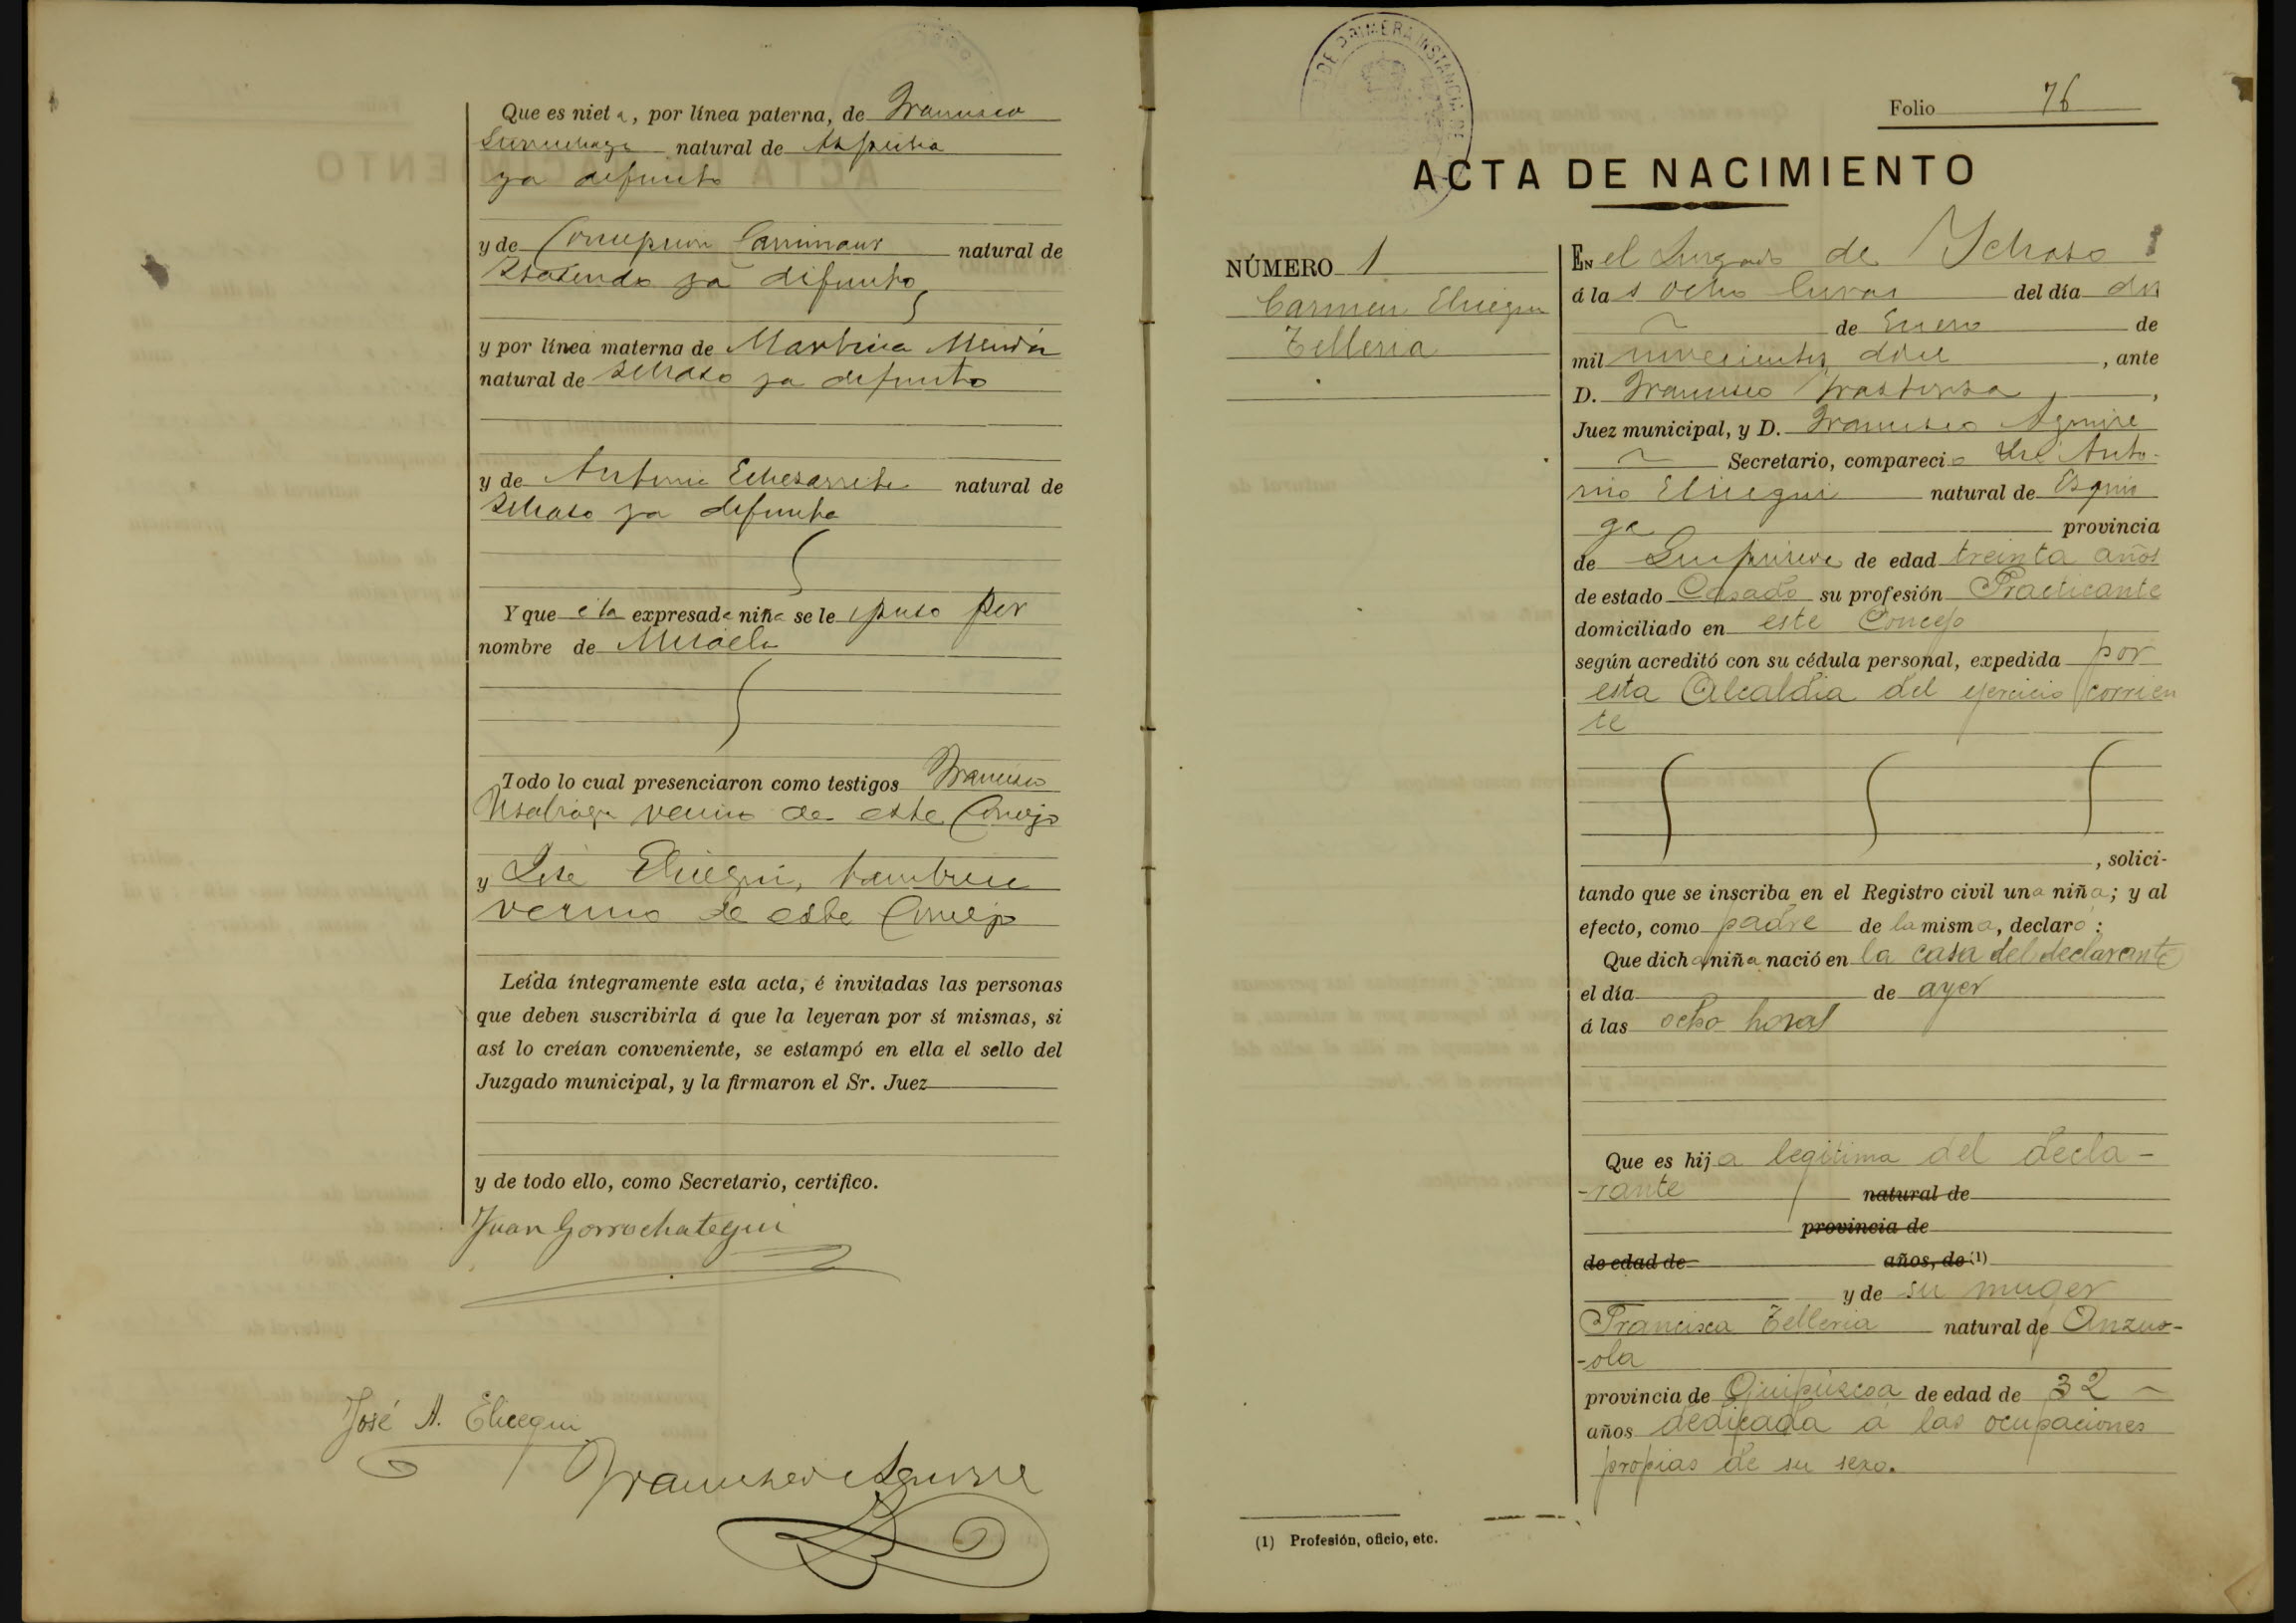 Que es nieta, por línea paterna, de Francisco
natural de Azpeitia
ya difunto
y de Concepcion natural de
ya difunto
y por línea materna de Martina
natural de Ichaso ya difunto
y de Antonia Echezarreta natural de
Ichaso ya difunta
Y que ésta expresada niña se le puso por
nombre de Micaela
Todo lo cual presenciaron como testigos Francisco
vecino de este Concejo
y José Elicegui, tambien
vecino de este Concejo
Leída íntegramente esta acta, é invitadas las personas
que deben suscribirla á que la leyeran por sí mismas, si
así lo creían conveniente, se estampó en ella el sello del
Juzgado municipal, y la firmaron el Sr. Juez
y de todo ello, como Secretario, certifico.
Juan Gorrochategui
José A. Elicegui
Francisco Aguirre
DE PRIMERA INSTANCIA DE
Folio 76
ACTA DE NACIMIENTO
NÚMERO 1
Carmen Elicegui
Telleria
EN el Juzgado de Ichaso
á las ocho horas del día dos
de Enero de
mil novecientos doce, ante
D. Francisco
Juez municipal, y D. Francisco Aguirre
Secretario, compareció José Anto-
nio Elicegui natural de Ezquio
ga provincia
de Guipúzcoa de edad treinta años
de estado Casado su profesión Practicante
domiciliado en este Concejo
según acreditó con su cédula personal, expedida por
esta Alcaldia del ejercicio corrien
te
, solici-
tando que se inscriba en el Registro civil una niña; y al
efecto, como padre de la misma, declaró:
Que dicha niña nació en la casa del declarante
el día de ayer
á las ocho horas
Que es hija legitima del decla-
-rante natural de
provincia de
de edad de años, de (1)
y de su muger
Francisca Telleria natural de Anzuo-
-ola
provincia de Guipúzcoa de edad de 32
años dedicada á las ocupaciones
propias de su sexo.
(1) Profesión, oficio, etc.